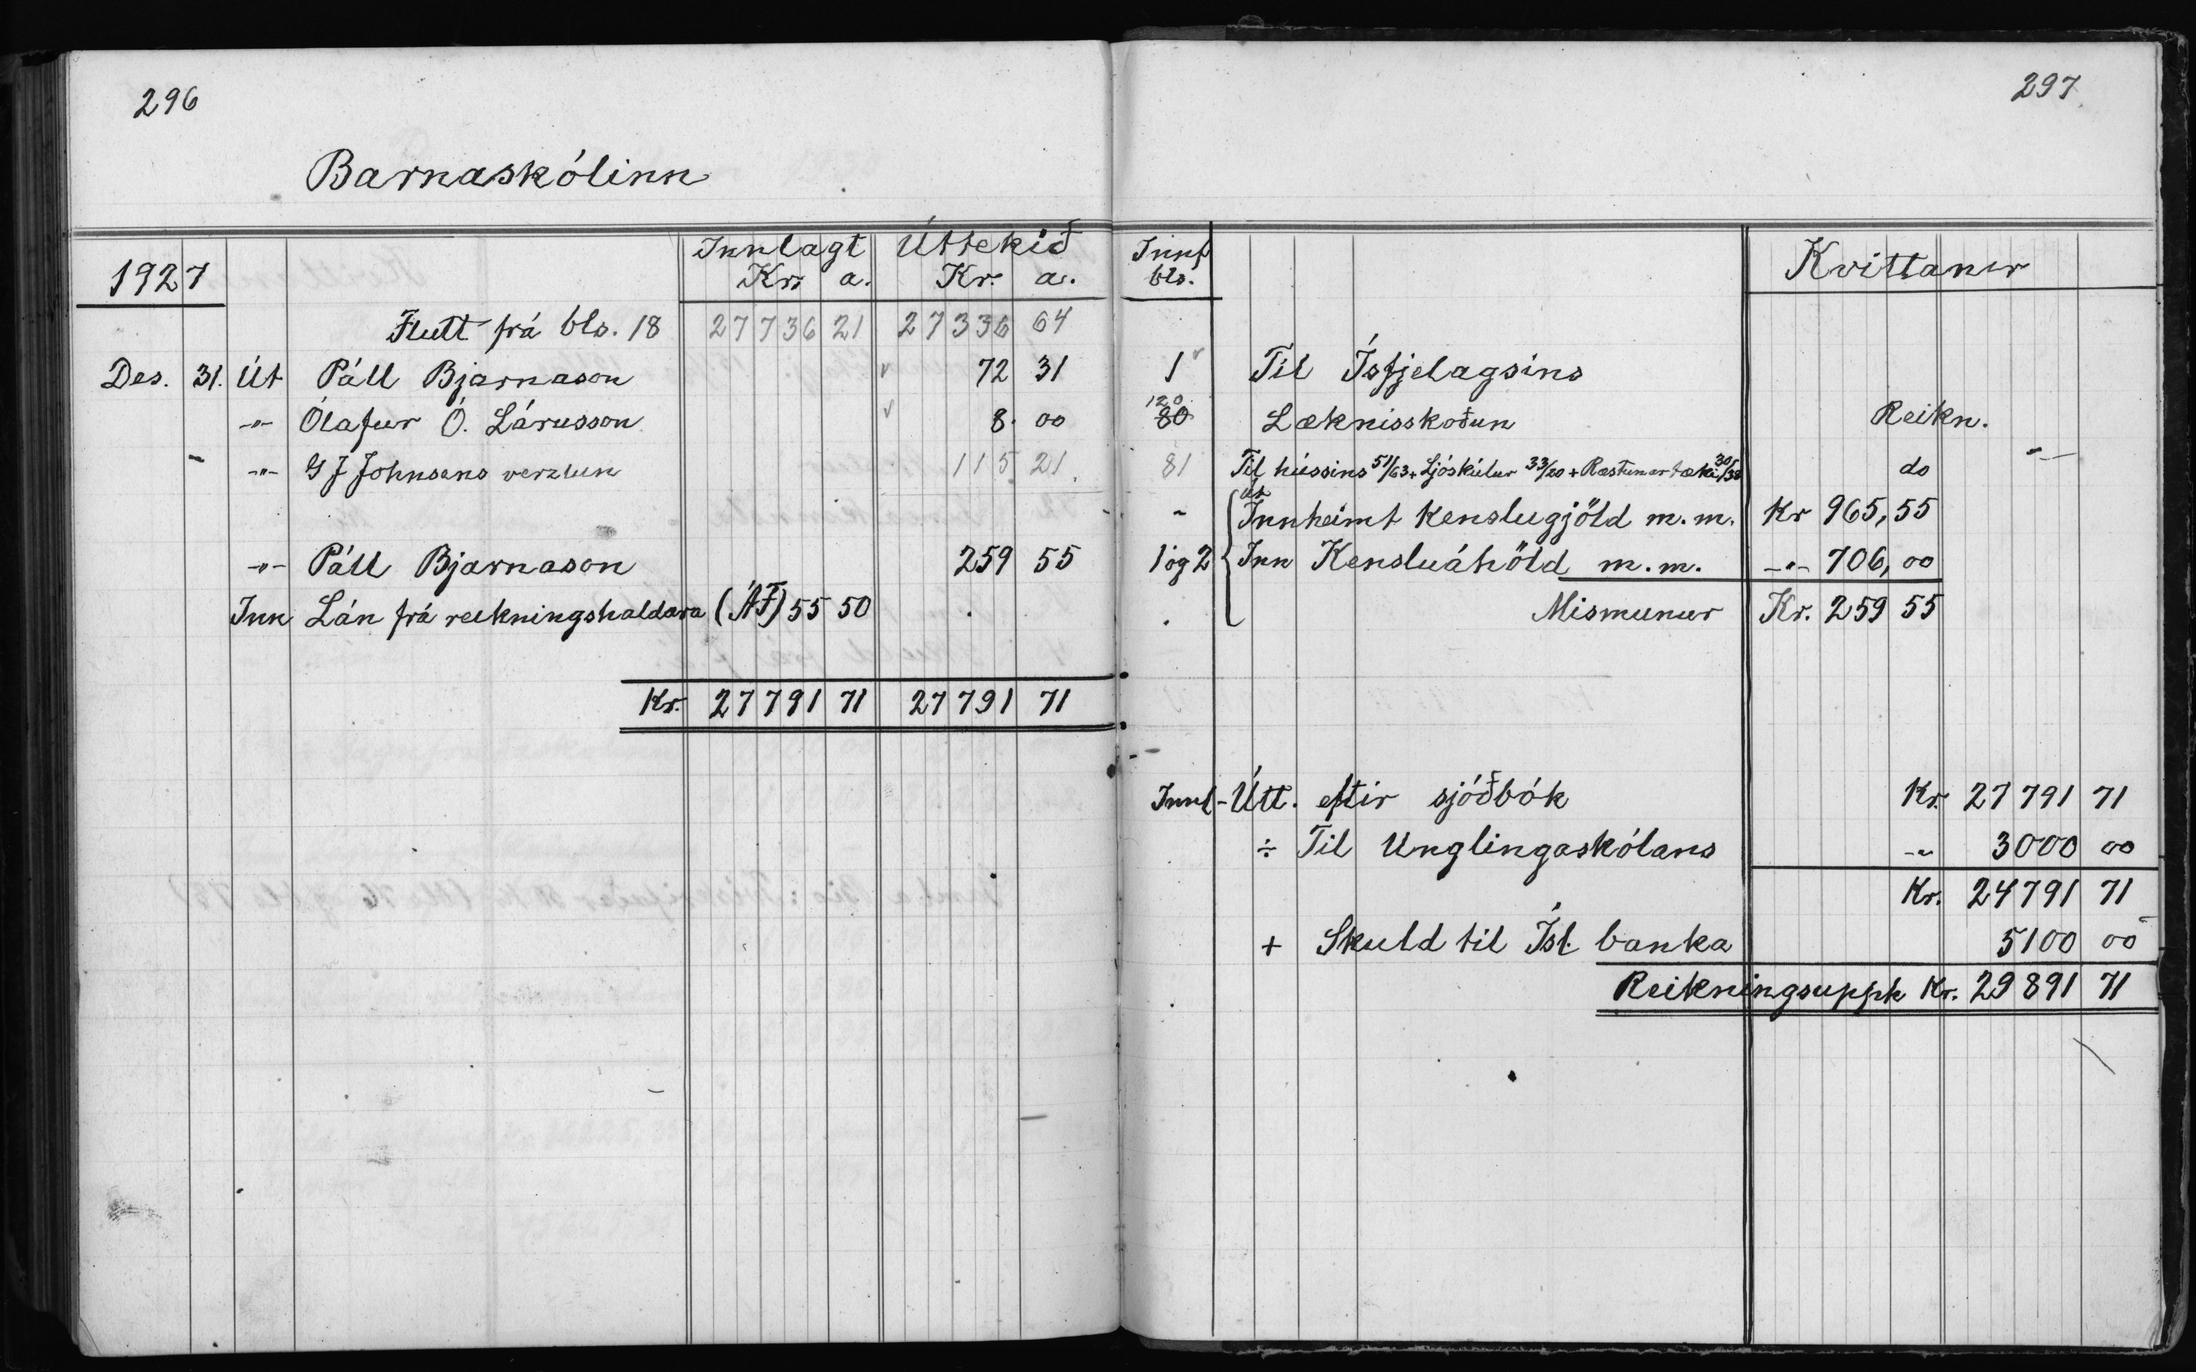 296
Barnaskólinn
1927 Innlagt Úttekið
Kr. a. Kr. a.
Flutt frá bls. 18 27736 21 27336 64
Des. 31. Út Páll Bjarnason 72 31
-"- Ólafur Ó. Lárusson 8. 00
-"- G J Johnsens verzlun 115 21
-"- Páll Bjarnason 259 55
Inn Lán frá reikningshaldara (ÁF) 55 50
Kr. 27791 71 27791 71
297
bls. Kvittaner
1 Til Ísfjelagsins
120
80 Læknisskoðun Reikn.
81 Til hússins 51/63 + Ljóskúlur 33/20 + Ræstunartæki 30/38 do
út
Innheimt kenslugjöld m.m. Kr 965,55
1 og 2 Inn Kensluáhöld m.m. -"- 706,00
Mismunur Kr. 259 55
Innl-Útt. eftir sjóðbók Kr. 27791 71
÷ Til Unglingaskólans -"- 3000 00
Kr. 24791 71
+ Skuld til Ísl. banka 5100 00
Reikningsuppk Kr. 29891 71